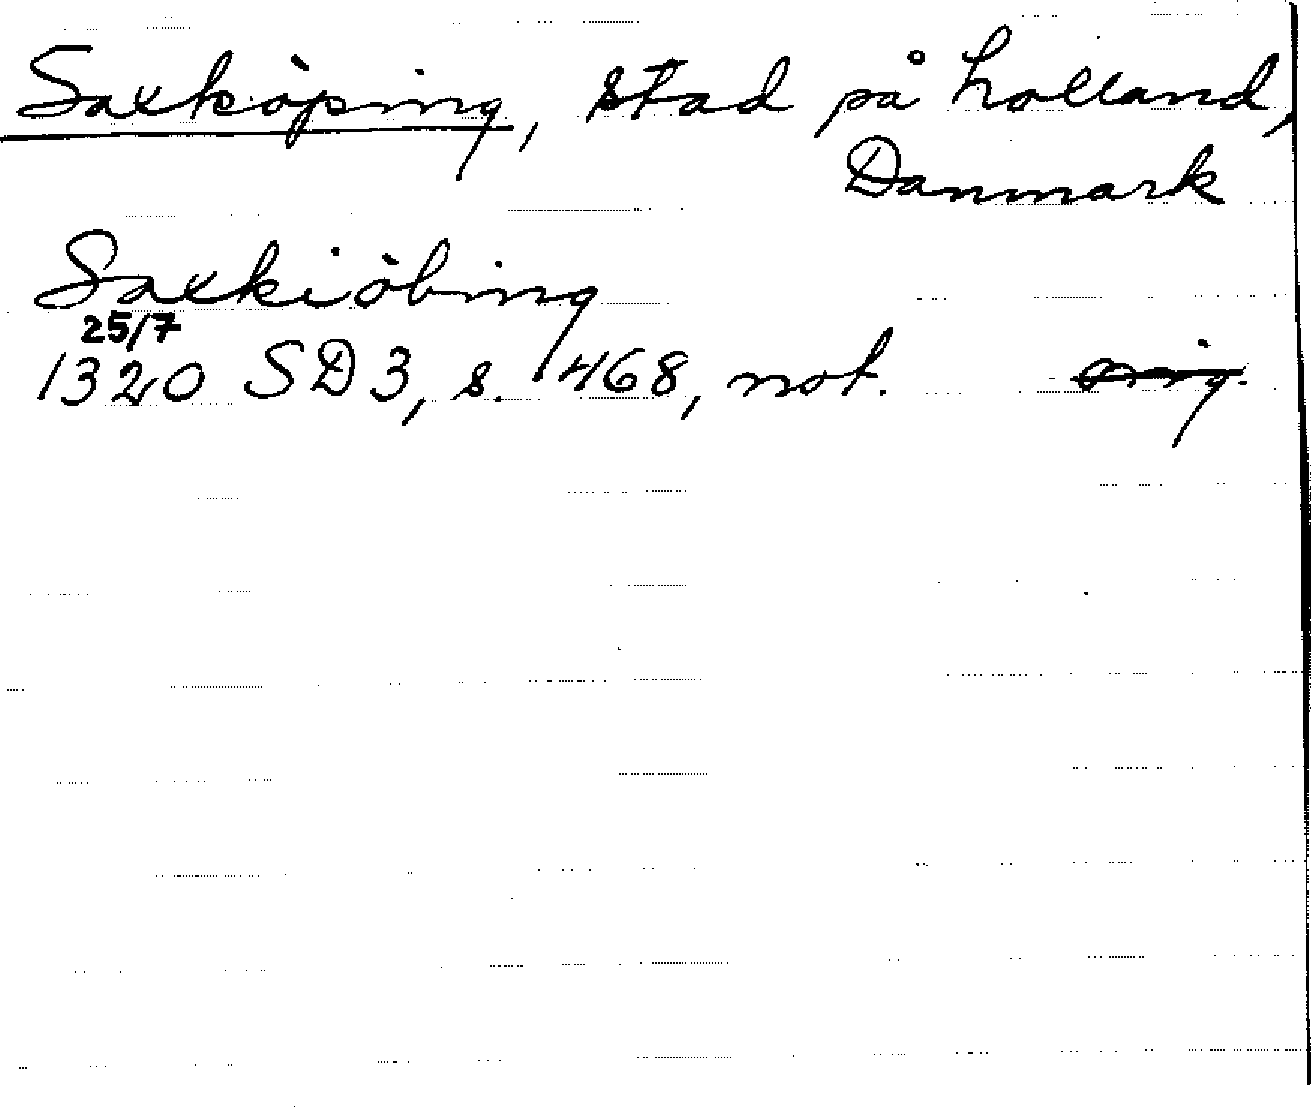 Saxköping, stad på Lolland,
Danmark
Saxkiöbing
25/7
1320 SD3, s. 468, not. orig.